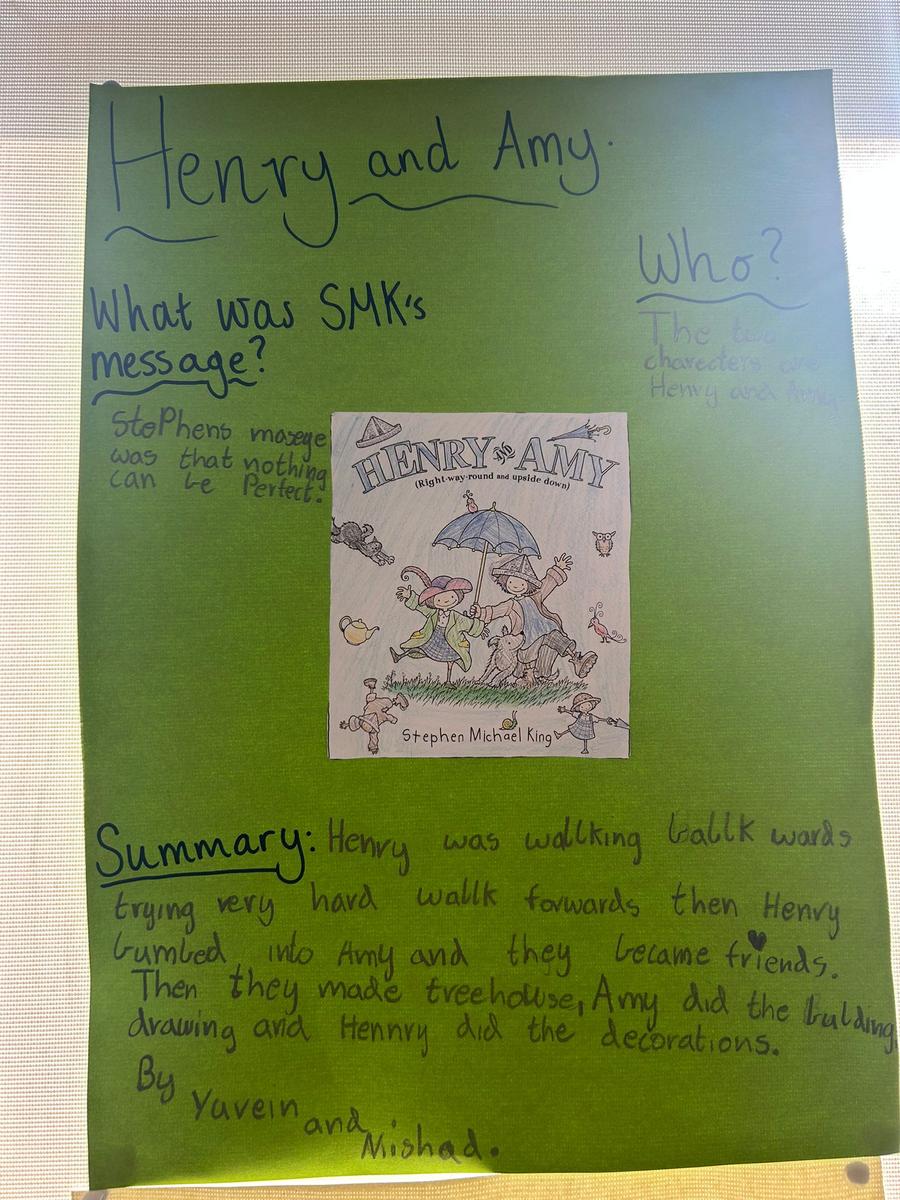 Henry and Amy.
What was SMK's
message?
StePhens masege
was that nothing
can be Perfect.
Who?
The
charecters
Henry and
HENRY AND AMY
(Right-way-round and upside down)
Stephen Michael King
Summary: Henry was wallking ballk wards
trying very hard wallk forwards then Henry
bumbed into Amy and they became friends.
Then they made treehouse, Amy did the bulding
drawing and Hennry did the decorations.
By
Yuvein
and
Mishad.